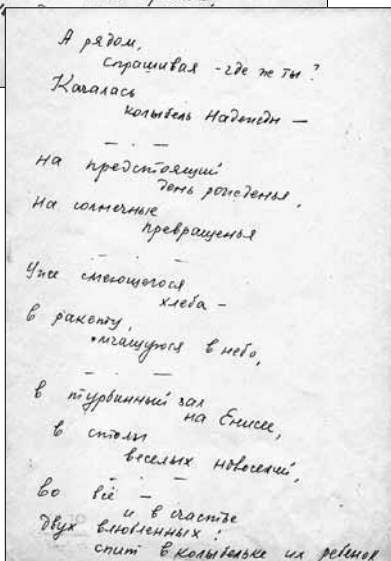 А рядом,
спрашивая - где же ты?
Качалась
колыбель Надежды —
— . —
на предстоящий
день рожденья,
На солнечные
превращенья
— . —
Уже смеющегося
хлеба -
в ракету,
мчащуюся в небо,
— . —
в турбинный зал
на Енисее,
в столы
веселых новоселий,
во всё -
и в счастье
двух влюбленных:
спит в колыбельке их ребенок